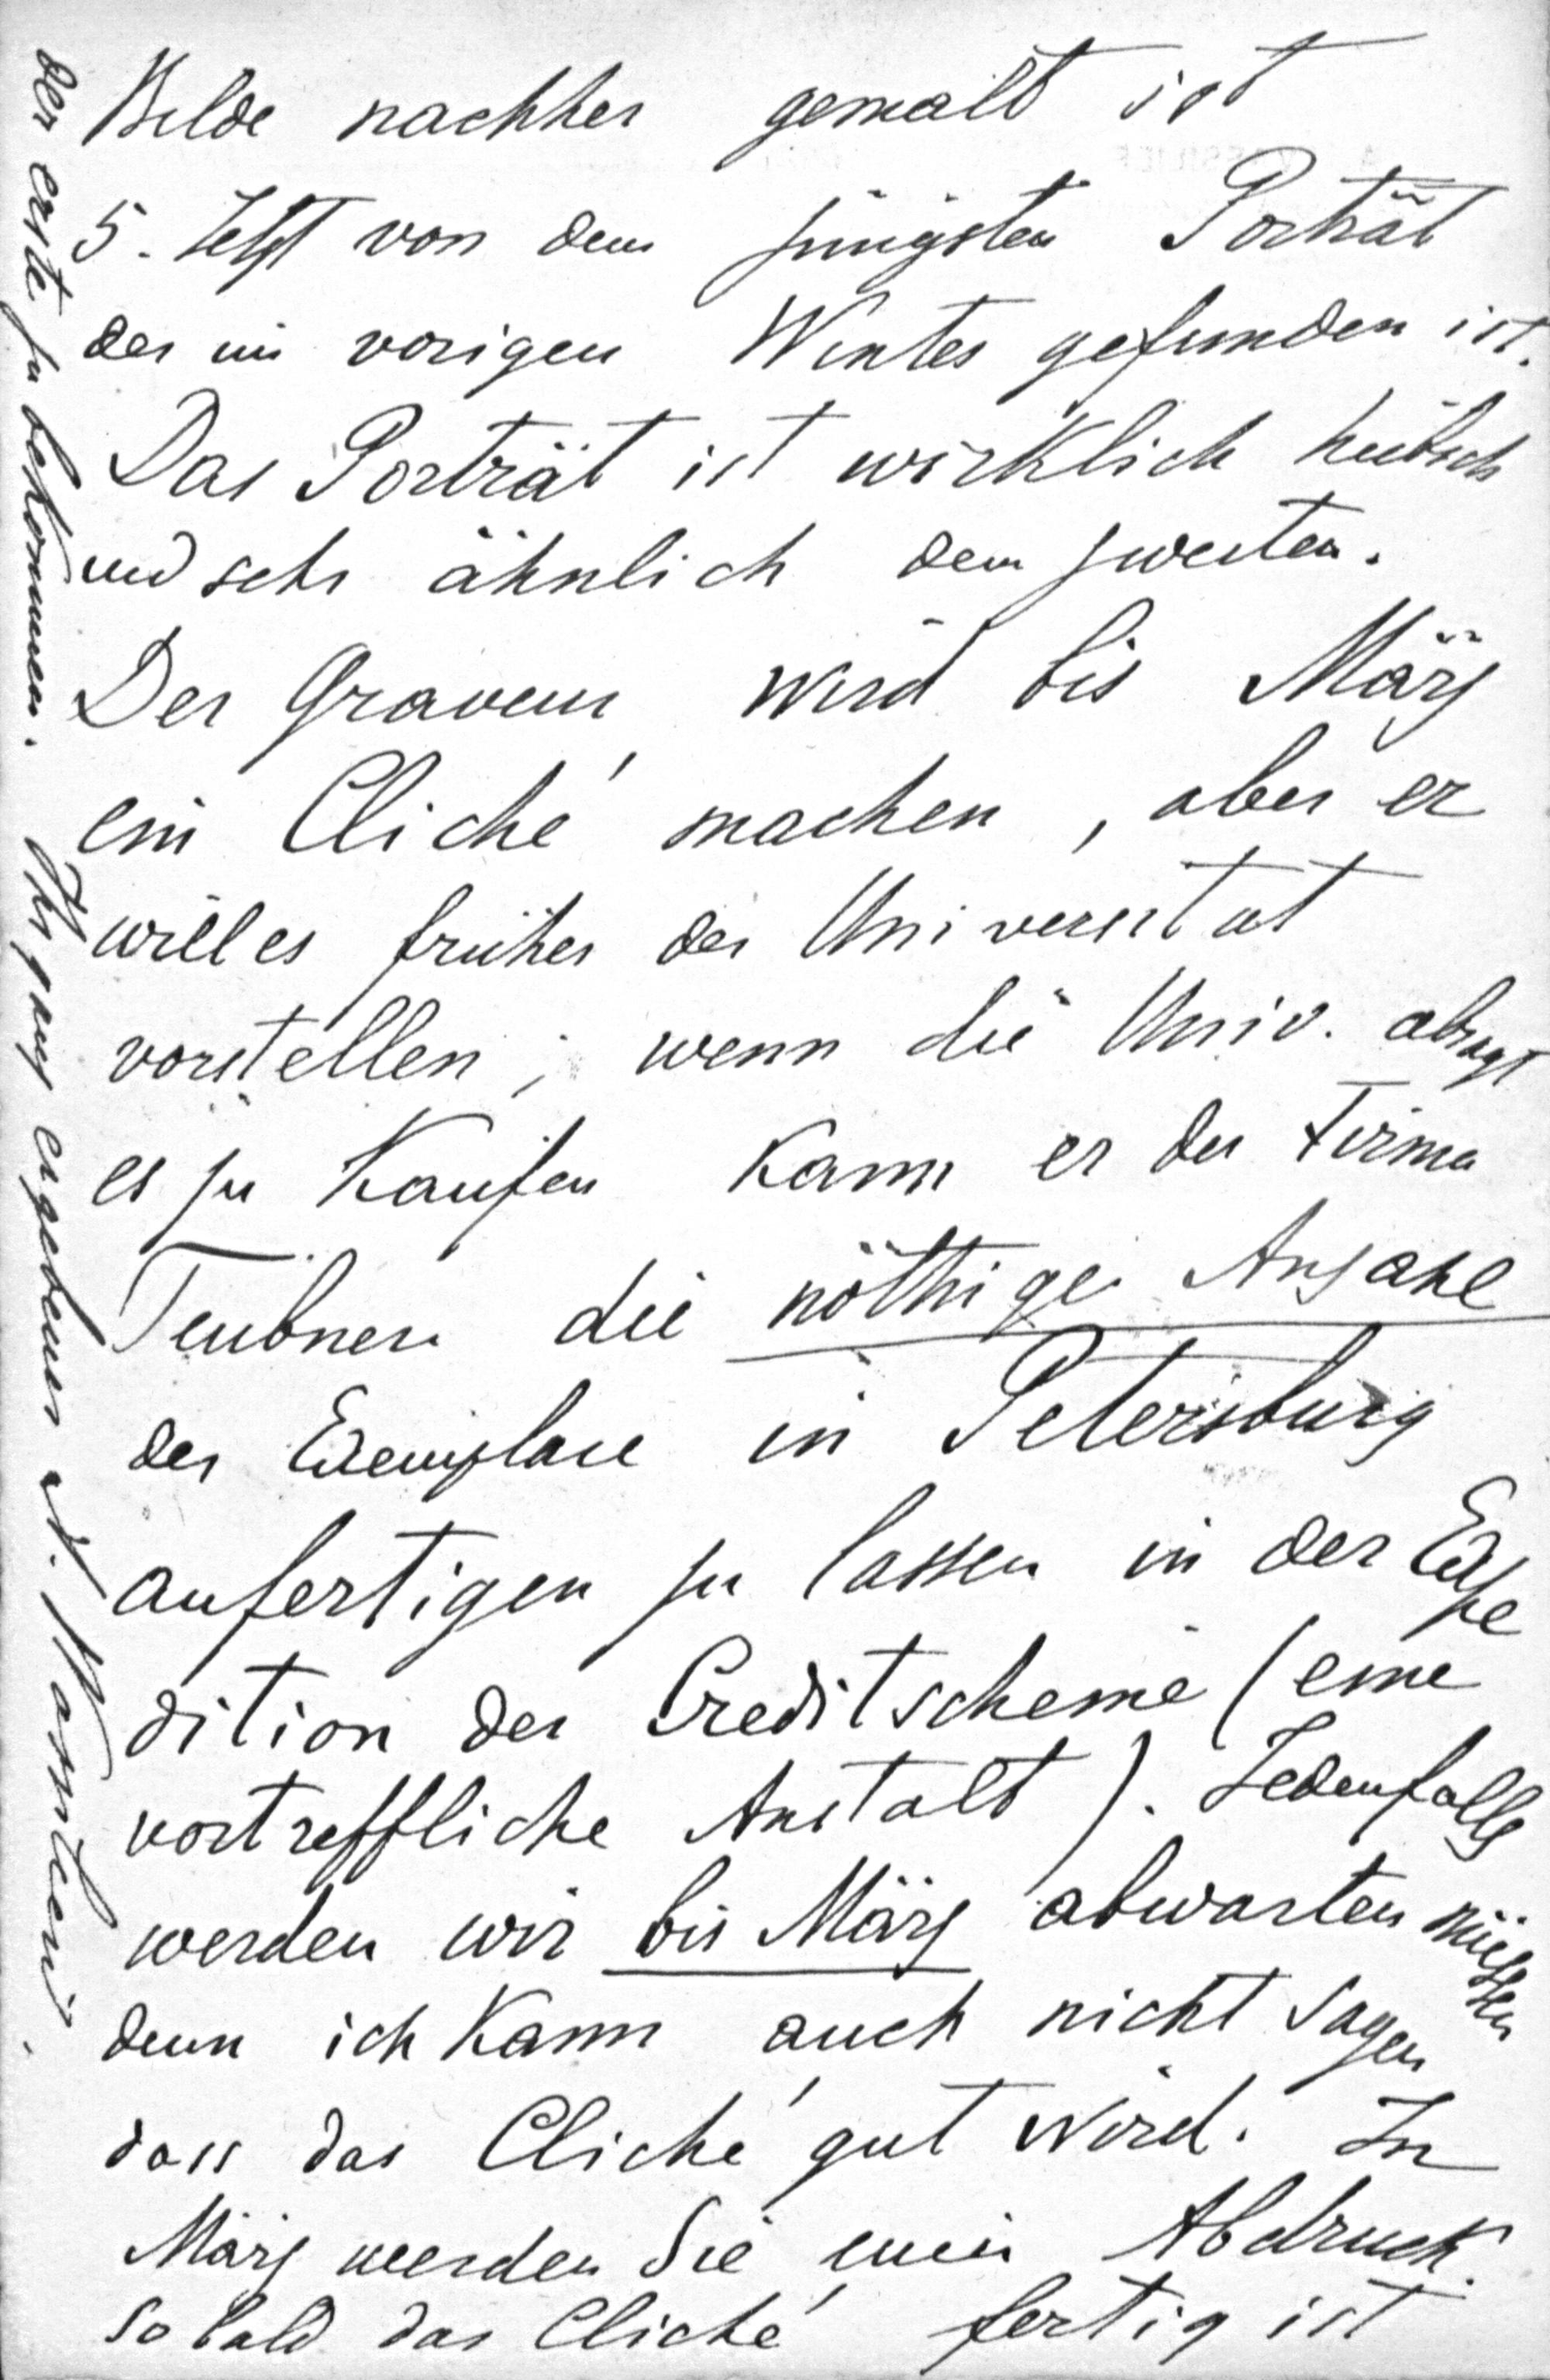 Bilde nachher gemalt ist
5. Jetzt von dem jüngsten Porträt
der im vorigen Winter gefunden ist.
Das Porträt ist wirklich hübsch
und sehr ähnlich dem zweiten.
Der Graveur wird bis März
ein Cliché machen, aber er
will es früher der Universitat
vorstellen; wenn die Univ. absagt
es zu Kaufen Kann er der Firma
Teubner die nöthige Anzahl
der Exemplare in Petersburg
anfertigen zu lassen in der Expe
dition der Creditscheine (eine
vortreffliche Anstalt). Jedenfalls
werden wir bis März abwarten müssen
denn ich Kann auch nicht sagen
dass das Cliché gut wird. In
März werden Sie einen Abdruck
sobald das Cliché fertig ist
der erste zu bekommen. Ihr ganz ergebener A.